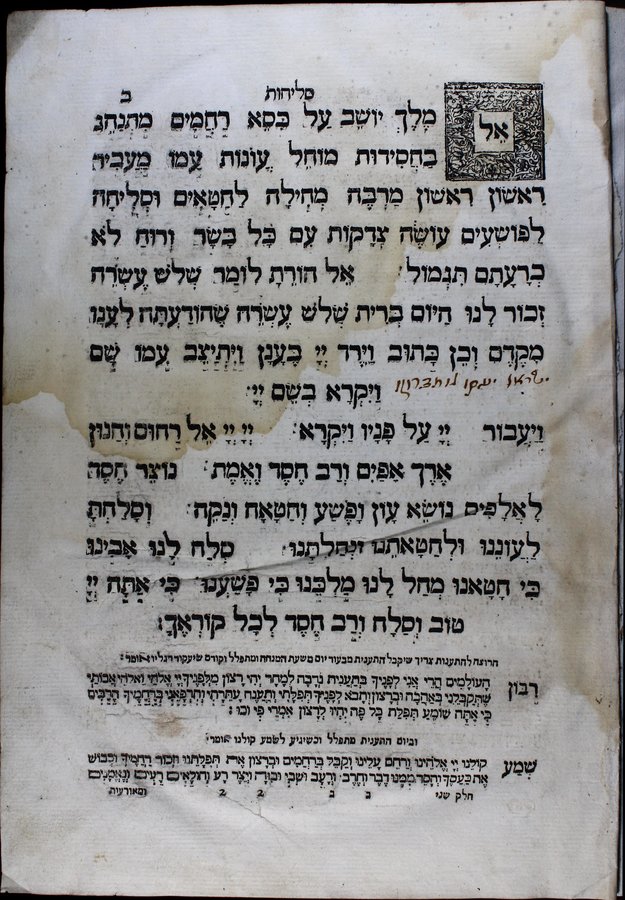 סליחות ב
אל מֶלֶךְ יוֹשֵׁב עַל כִּסֵּא רַחֲמִים מִתְנַהֵג
בַּחֲסִידוּת מוֹחֵל עֲוֹנוֹת עַמּוֹ מַעֲבִיר
רִאשׁוֹן רִאשׁוֹן מַרְבֶּה מְחִילָה לַחַטָּאִים וּסְלִיחָה
לַפּוֹשְׁעִים עוֹשֶׂה צְדָקוֹת עִם כָּל בָּשָׂר וְרוּחַ לֹא
כְרָעָתָם תִּגְמוֹל: אֵל הוֹרֵתָ לוֹמַר שְׁלֹשׁ עֶשְׂרֵה
זְכוֹר לָנוּ הַיּוֹם בְּרִית שְׁלֹשׁ עֶשְׂרֵה שֶׁהוֹדַעְתָּה לֶעָנָו
מִקֶּדֶם וְכֵן כָּתוּב וַיֵּרֶד יְיָ בֶּעָנָן וַיִּתְיַצֵּב עִמּוֹ שָׁם
וַיִּקְרָא בְשֵׁם יְיָ:
וַיַּעֲבוֹר יְיָ עַל פָּנָיו וַיִּקְרָא: יְיָ יְיָ אֵל רַחוּם וְחַנּוּן
אֶרֶךְ אַפַּיִם וְרַב חֶסֶד וֶאֱמֶת: נוֹצֵר חֶסֶד
לָאֲלָפִים נוֹשֵׂא עָוֹן וָפֶשַׁע וְחַטָּאָה וְנַקֵּה: וְסָלַחְתָּ
לַעֲוֹנֵנוּ וּלְחַטָּאתֵנוּ וּנְחַלְתָּנוּ: סְלַח לָנוּ אָבִינוּ
כִּי חָטָאנוּ מְחַל לָנוּ מַלְכֵּנוּ כִּי פָשָׁעְנוּ: כִּי אַתָּה יְיָ
טוֹב וְסַלָּח וְרַב חֶסֶד לְכָל קוֹרְאֶךָ:
הרוצה להתענות צריך שיקבל התענית מבעוד יום משעת המנחה ומתפלל וקודם שיעקור רגליו אומר:
רִבּוֹן הָעוֹלָמִים הֲרֵי אֲנִי לְפָנֶיךָ בְּתַעֲנִית נְדָבָה לְמָחָר יְהִי רָצוֹן מִלְּפָנֶיךָ יְיָ אֱלֹהַי וֵאלֹהֵי אֲבוֹתַי
שֶׁתְּקַבְּלֵנִי בְּאַהֲבָה וּבְרָצוֹן וְתָבֹא לְפָנֶיךָ תְּפִלָּתִי וְתַעֲנֶה עֲתִרָתִי וְתִרְפָּאֵנִי בְּרַחֲמֶיךָ הָרַבִּים
כִּי אַתָּה שׁוֹמֵעַ תְּפִלַּת כָּל פֶּה יִהְיוּ לְרָצוֹן אִמְרֵי פִי וכו:
וביום התענית מתפלל וכשיגיע לשמע קולנו אומר:
שְׁמַע קוֹלֵנוּ יְיָ אֱלֹהֵינוּ וְרַחֵם עָלֵינוּ וְקַבֵּל בְּרַחֲמִים וּבְרָצוֹן אֶת תְּפִלָּתֵנוּ וּזְכוֹר רַחֲמֶיךָ וּכְבוֹשׁ
אֶת כַּעַסְךָ וְהָסֵר מִמֶּנּוּ דֶּבֶר וְחֶרֶב וְרָעָב וּשְׁבִי וּבִזָּה וְיֵצֶר רַע וָחֳלָאִים רָעִים וְנֶאֱמָנִים
חלק שני ב ב 2 2 ומאורעות